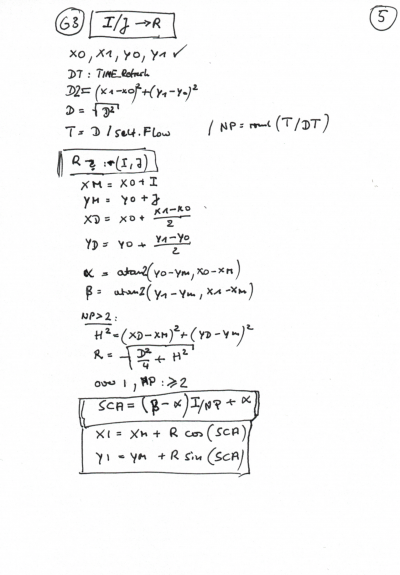 G3 I/J → R
5
X0, X1, Y0, Y1 ✓
DT: TIME_Refresh
D2 = (X1-X0)² + (Y1-Y0)²
D = √D2
T = D / self.Flow / NP = round (T/DT)
(I, J)
XM = X0 + I
YM = Y0 + J
XD = X0 + (X1-X0)/2
YD = Y0 + (Y1-Y0)/2
α = atan2(Y0-YM, X0-XM)
β = atan2(Y1-YM, X1-XM)
NP>2:
H² = (XD-XM)² + (YD-YM)²
R = √(D²/4 + H²)
over 1, NP: ≥2
SCA = (β-α) I/NP + α
XI = XM + R cos(SCA)
YI = YM + R sin(SCA)